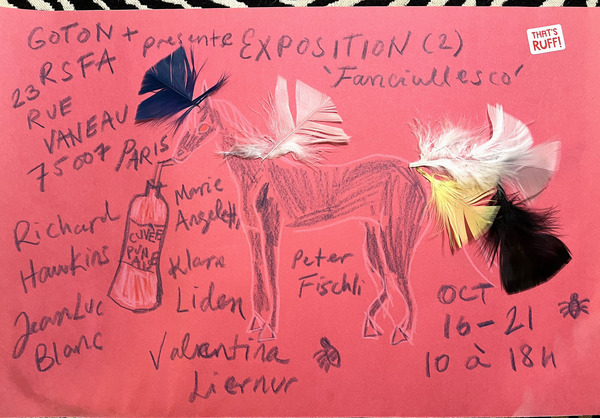 GOTON + présente EXPOSITION (2)
RSFA
'Fanciullesco'
23
RUE
VANEAU
75007 PARIS
THAT'S
RUFF!
Richard
Hawkins
Jean Luc
Blanc
CUVÉE
Marie
Angeletti
Klara
Liden
Peter
Fischli
Valentina
Liernur
OCT
16-21
10 à 18H